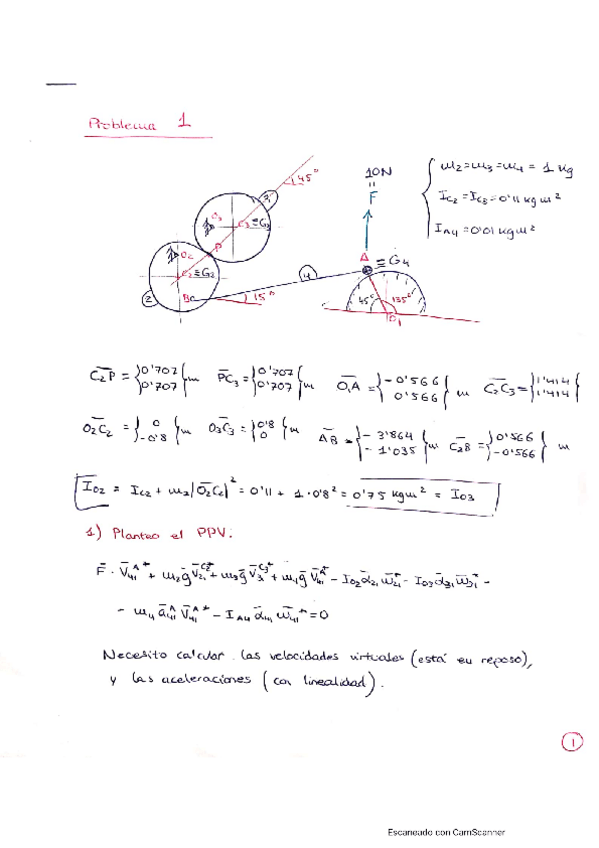 Problema 1
10N
=
F
m2=m3=m4 = 1 kg
IC2 = IC3 = 0'11 kg m²
IA4 = 0'01 kg m²
45°
O3
C3≡G3
3
P
O2
C2≡G2
2
B
15°
4
A ≡ G4
45° 135°
O1
C2P = {0'707 0'707} m PC3 = {0'707 0'707} m O1A = {-0'566 0'566} m C2C3 = {1'414 1'414}
O2C2 = {0 -0'8} m O3C3 = {0'8 0} m AB = {-3'864 -1'035} m C2B = {0'566 -0'566} m
IO2 = IC2 + m2|O2C2|² = 0'11 + 1·0'8² = 0'75 kg m² = IO3
1) Planteo el PPV.
F · V41^A* + m2 g V21^C2* + m3 g V31^C3* + m4 g V41^A* - IO2 α21 ω21* - IO3 α31 ω31* -
- m4 a41^A V41^A* - IA4 α41 ω41* = 0
Necesito calcular las velocidades virtuales (está en reposo),
y las aceleraciones (con linealidad).
1
Escaneado con CamScanner